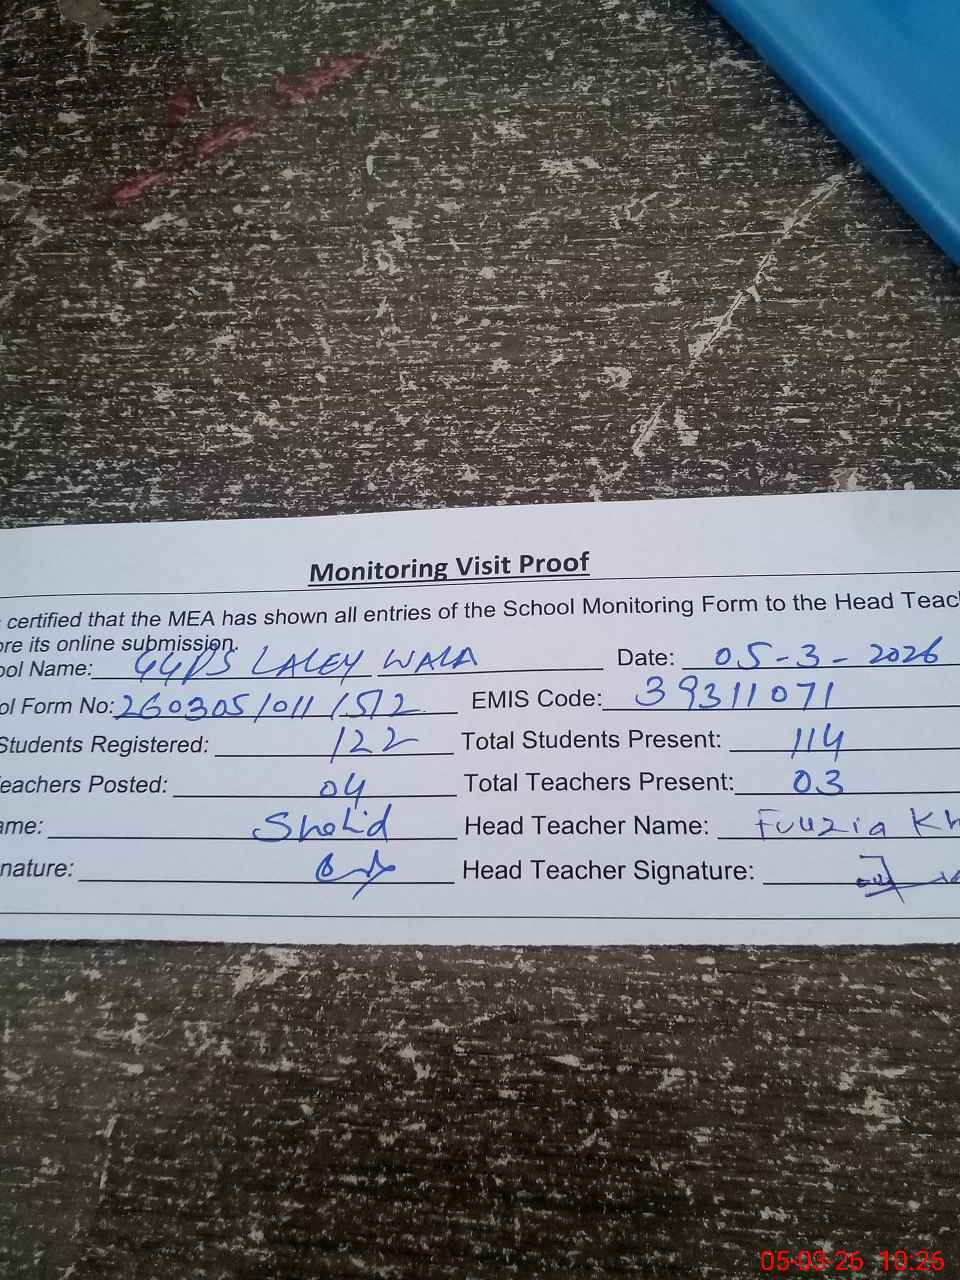 Monitoring Visit Proof
certified that the MEA has shown all entries of the School Monitoring Form to the Head Teac
ore its online submission.
ool Name: GGPS LALEY WALA Date: 05-3-2026
ol Form No: 260305/011/572 EMIS Code: 39311071
Students Registered: 122 Total Students Present: 114
eachers Posted: 04 Total Teachers Present: 03
ame: Shahid Head Teacher Name: Fouzia Kh
nature: Head Teacher Signature:
05-03-26 10:26